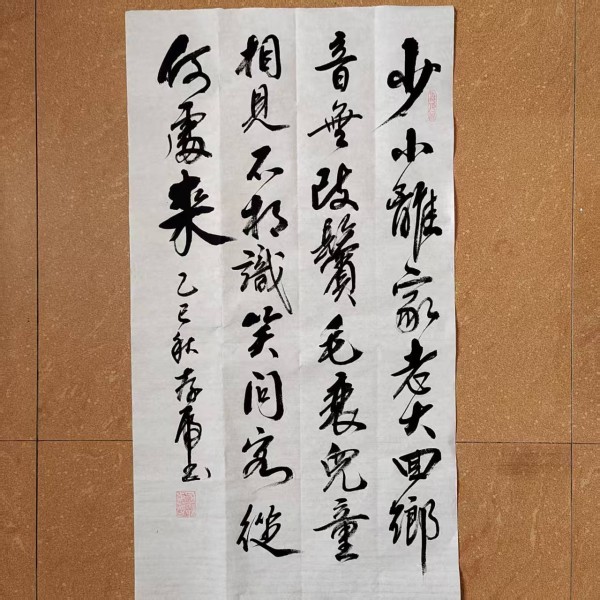 少小離家老大回鄉
音無改鬢毛衰兒童
相見不相識笑問客從
何處来乙巳秋存厚书